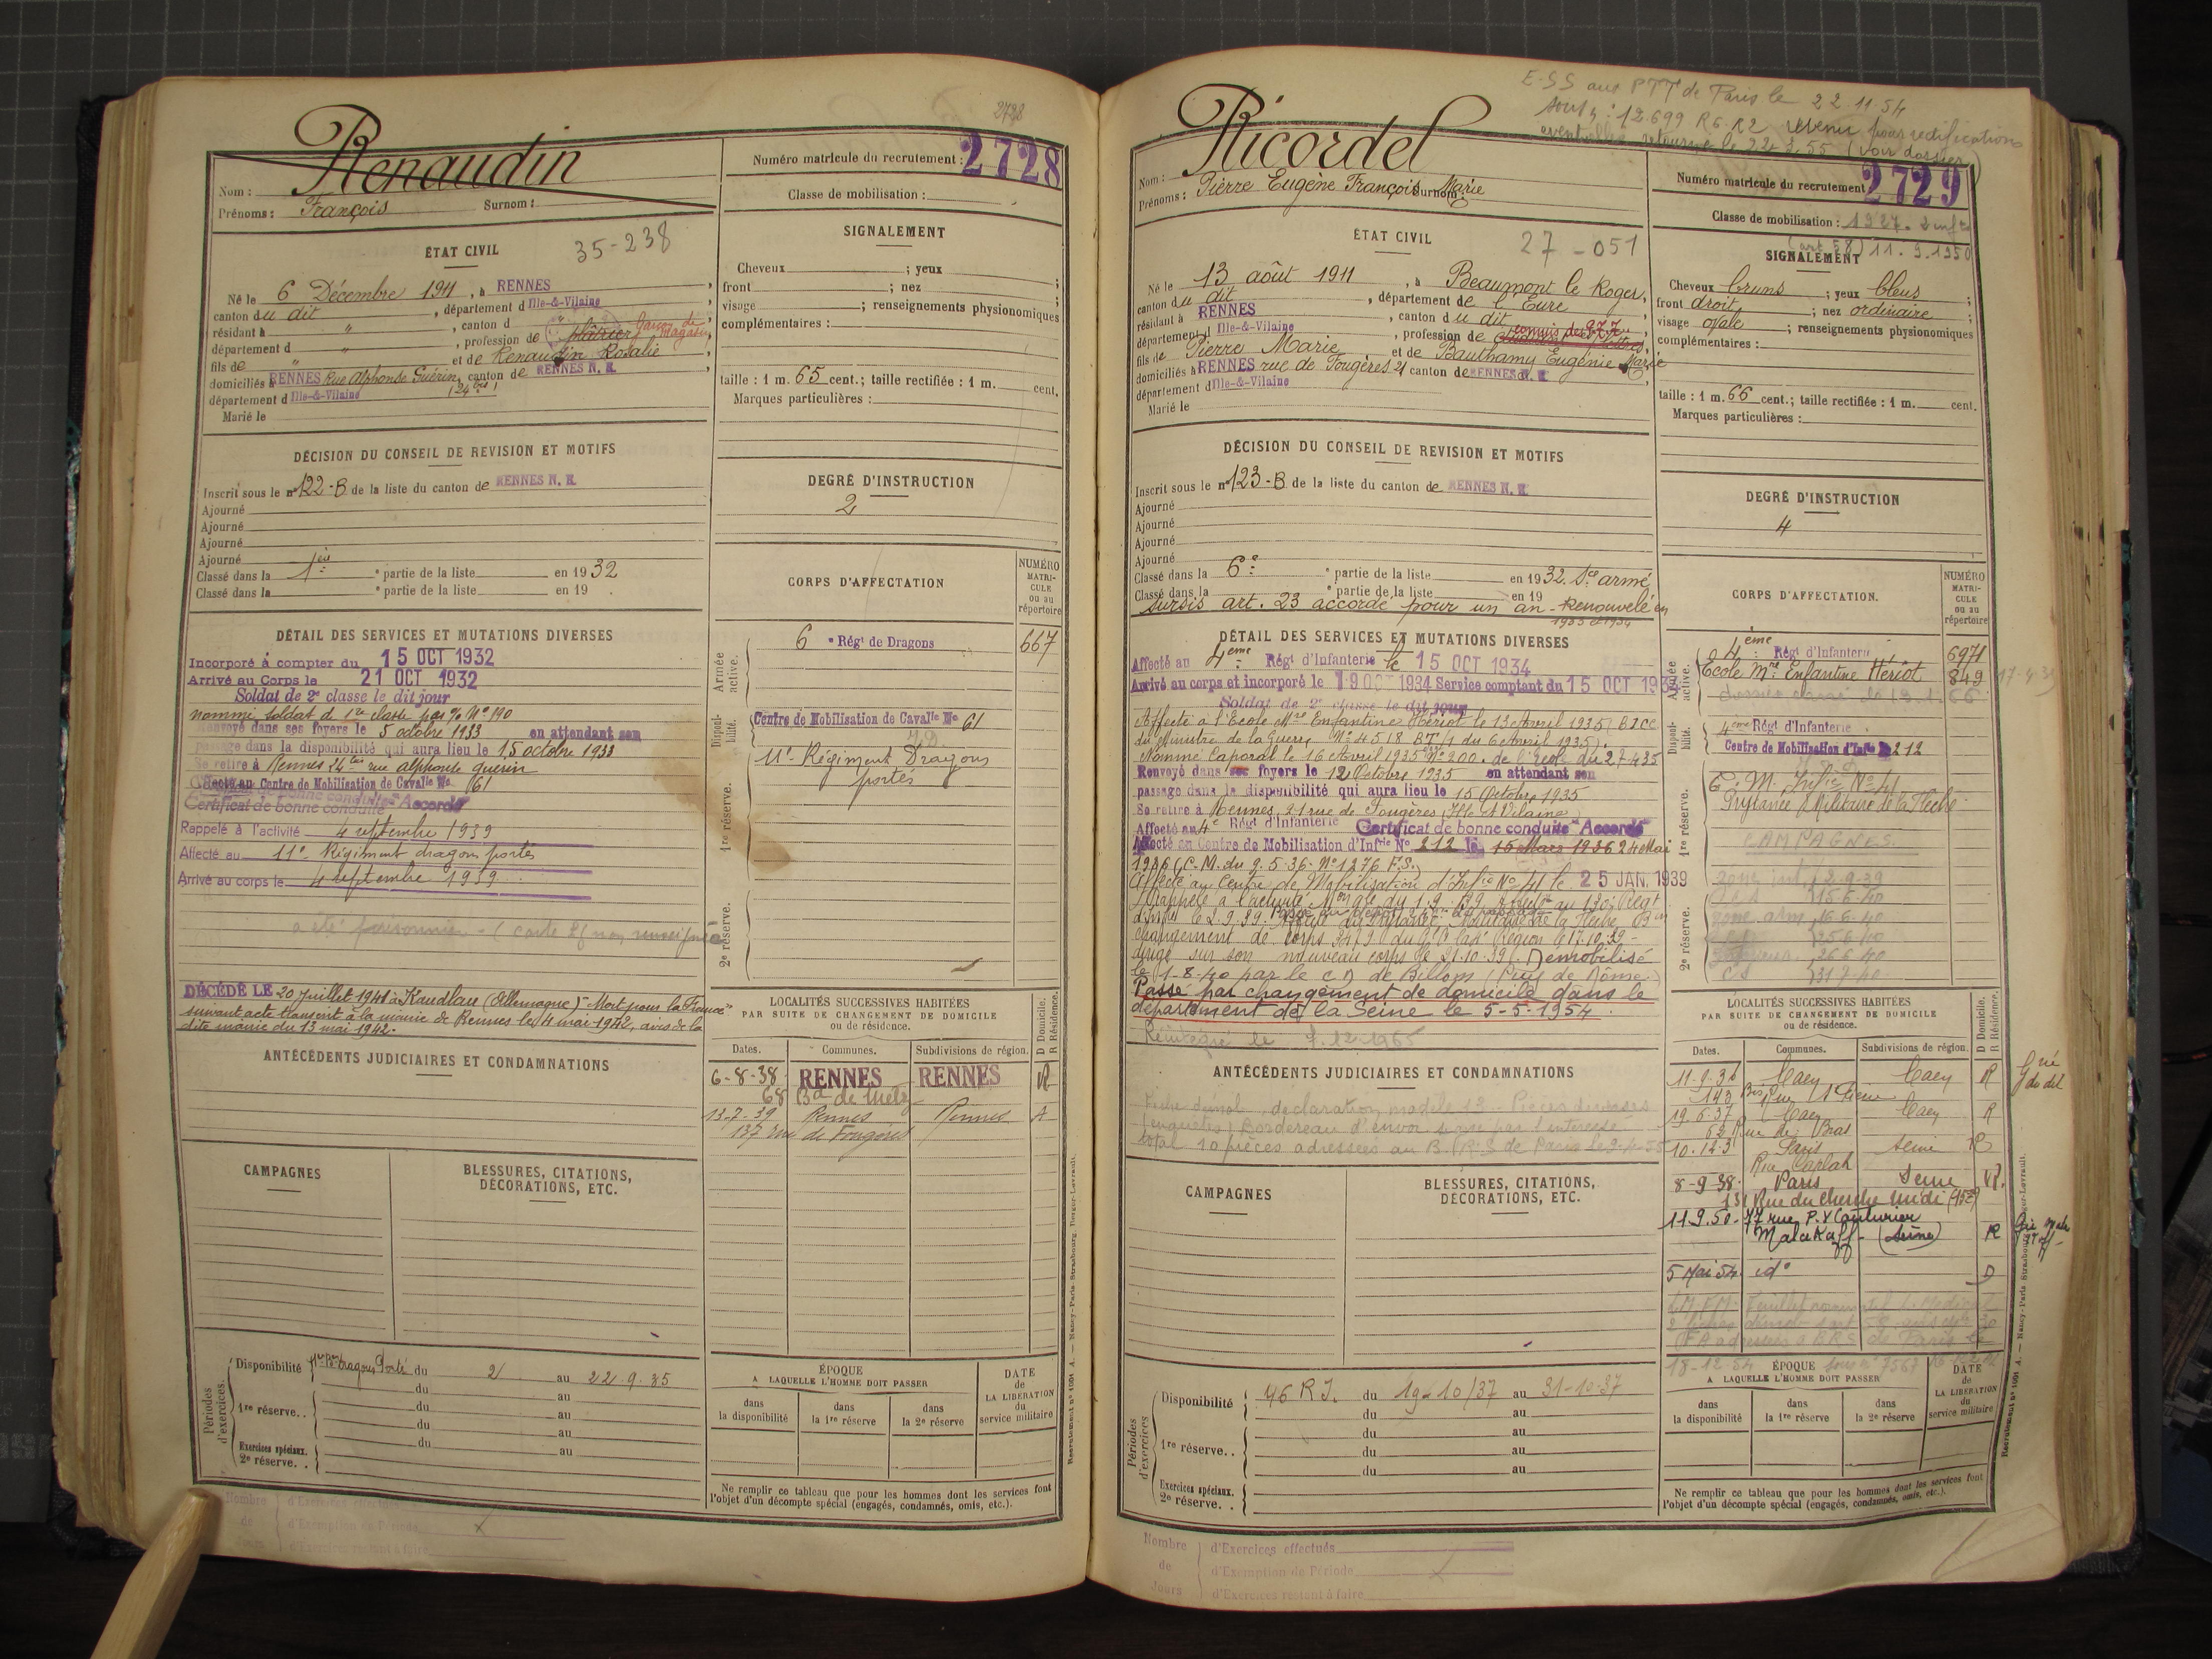 2728
Renaudin
Nom :
Prénoms : François Surnom :
Numéro matricule du recrutement : 2728
Classe de mobilisation :
ÉTAT CIVIL
35-238
Né le 6 Décembre 1911, à RENNES,
canton du dit, département d Ille-&-Vilaine,
résidant à ", canton d ",
département d ", profession de plâtrier Garçon de Magasin,
fils de " et de Renaudin Rosalie,
domiciliés à RENNES Rue Alphonse Guérin, canton de RENNES N. E.
département d Ille-&-Vilaine (24 bis)
Marié le
SIGNALEMENT
Cheveux ; yeux ;
front ; nez ;
visage ; renseignements physionomiques
complémentaires :
taille : 1 m. 65 cent.; taille rectifiée : 1 m. cent.
Marques particulières :
DÉCISION DU CONSEIL DE REVISION ET MOTIFS
Inscrit sous le n° 122-B de la liste du canton de RENNES N. E.
Ajourné
Ajourné
Ajourné
Ajourné
Classé dans la 1ère partie de la liste en 1932
Classé dans la e partie de la liste en 19 .
DEGRÉ D'INSTRUCTION
2
DÉTAIL DES SERVICES ET MUTATIONS DIVERSES
Incorporé à compter du 15 OCT 1932
Arrivé au Corps le 21 OCT 1932
Soldat de 2e classe le dit jour
nommé soldat de 1re classe par % N° 190
Renvoyé dans ses foyers le 5 octobre 1933 en attendant son
passage dans la disponibilité qui aura lieu le 15 octobre 1933
Se retire à Rennes 24 bis rue alphonse guerin
Affecté au Centre de Mobilisation de Cavalle No 61
Certificat de bonne conduite "Accordé"
Rappelé à l'activité 4 septembre 1939
Affecté au 11e Régiment dragons portés
Arrivé au corps le 4 septembre 1939
a été prisonnier - (carte
DÉCÉDÉ LE 20 Juillet 1941 à Kaudlau (Allemagne) "Mort pour la France"
suivant acte transcrit à la mairie de Rennes le 4 mai 1942, avis de la
dite mairie du 13 mai 1942.
CORPS D'AFFECTATION
NUMÉRO MATRI-CULE ou au répertoire
Armée active.
6 e Régt de Dragons 667
Disponibilité.
Centre de Mobilisation de Cavalle No 61
11e Régiment Dragons
portés
1re réserve.
2e réserve.
ANTÉCÉDENTS JUDICIAIRES ET CONDAMNATIONS
LOCALITÉS SUCCESSIVES HABITÉES
PAR SUITE DE CHANGEMENT DE DOMICILE
ou de résidence.
D Domicile. R Résidence.
Dates. Communes. Subdivisions de région.
6-8-38 RENNES RENNES R
68 Bd de Metz
13-7-39 Rennes Rennes
137 rue de Fougères
CAMPAGNES
BLESSURES, CITATIONS,
DÉCORATIONS, ETC.
Périodes d'exercices.
Disponibilité 11e Bon Dragons Porté du 2 au 22.9.35
1re réserve. . du au
du au
du au
Exercices spéciaux.
2e réserve. . du au
ÉPOQUE
A LAQUELLE L'HOMME DOIT PASSER
DATE de LA LIBÉRATION du service militaire
dans la disponibilité
dans la 1re réserve
dans la 2e réserve
Ne remplir ce tableau que pour les hommes dont les services font
l'objet d'un décompte spécial (engagés, condamnés, omis, etc.).
Nombre de Jours
d'Exercices effectués
d'Exemption de Période
d'Exercices restant à faire
Recrutement N° 1091 A. — Nancy-Paris-Strasbourg. Berger-Levrault.
E-SS aux PTT de Paris le 22.11.54
sous n° : 12699 R6 R2 revenu pour rectifications
retourné le 22 2 55 (voir dossier)
Ricordel
Nom :
Prénoms : Pierre Eugène François Marie Surnom :
Numéro matricule du recrutement 2729
Classe de mobilisation : 1927.
(art 58) 11.9.1950
ÉTAT CIVIL
27-051
Né le 13 août 1911, à Beaumont le Roger,
canton du dit, département de l'Eure,
résidant à RENNES, canton du dit,
département d Ille-&-Vilaine, profession de commis des P.T.T.,
fils de Pierre Marie et de Bauthamy Eugénie Marie
domiciliés à RENNES rue de Fougères 21 canton de RENNES N. E.
département d Ille-&-Vilaine
Marié le
SIGNALEMENT
Cheveux bruns ; yeux bleus ;
front droit ; nez ordinaire ;
visage ovale ; renseignements physionomiques
complémentaires :
taille : 1 m. 66 cent.; taille rectifiée : 1 m. cent.
Marques particulières :
DÉCISION DU CONSEIL DE REVISION ET MOTIFS
Inscrit sous le n° 123-B de la liste du canton de RENNES N. E.
Ajourné
Ajourné
Ajourné
Ajourné
Classé dans la 6e partie de la liste en 1932. Sce armé
Classé dans la e partie de la liste en 19
sursis art. 23 accordé pour un an - Renouvelé en
1933 et 1934
DEGRÉ D'INSTRUCTION
4
DÉTAIL DES SERVICES ET MUTATIONS DIVERSES
Affecté au 4eme Régt d'Infanterie le 15 OCT 1934
Arrivé au corps et incorporé le 19 OCT 1934 Service comptant du 15 OCT 1934
Soldat de 2e classe le dit jour
Affecté à l'Ecole Mre Enfantine Hériot le 13 Avril 1935 (
du Ministre de la Guerre N° 4518 BT/1 du 6 Avril 1935).
Nommé Caporal le 16 Avril 1935 N° 200. de l'école du 27-4-35
Renvoyé dans ses foyers le 12 Octobre 1935 en attendant son
passage dans la disponibilité qui aura lieu le 15 Octobre 1935
Se retire à Rennes, 21 rue de Fougères, Ille et Vilaine
Affecté au 4e Régt d'Infanterie Certificat de bonne conduite "Accordé"
Affecté au Centre de Mobilisation d'Infrie N° 212 le 15 Mars 1936 24 Mai
1936 (C.M. du 9.5.36. N° 1276 F.S.)
Affecté au Centre de Mobilisation d'Infie No 41 le 25 JAN. 1939
Rappelé à l'activité le 2.9.39
changement de corps
dirigé sur son nouveau corps le 21.10.39. Démobilisé
le 1-8-40 par le CD de Billom (Puy de Dôme.)
Passé par changement de domicile dans le
département de la Seine le 5-5-1954.
Réintégré le 7.12.1965
CORPS D'AFFECTATION.
NUMÉRO MATRI-CULE ou au répertoire
Armée active.
4ème Régt d'Infanterie 6971
Ecole Mre Enfantine Hériot 849
Disponibilité.
4eme Régt d'Infanterie
Centre de Mobilisation d'Infie 212
1re réserve.
C. M. Infie No 41
Prytanée Militaire de la Flèche
CAMPAGNES
2e réserve.
ANTÉCÉDENTS JUDICIAIRES ET CONDAMNATIONS
total 10 pièces adressées au B.R.S de Paris le
LOCALITÉS SUCCESSIVES HABITÉES
PAR SUITE DE CHANGEMENT DE DOMICILE
ou de résidence.
D Domicile. R Résidence.
Dates. Communes. Subdivisions de région.
11-9-36 Caen Caen R
19.6.37 Caen Caen R
62 Rue de Bras
10.12.3 Paris Seine R
Rue Carlat
8-9-38. Paris Seine R.
131 Rue du Cherche Midi (15e)
11.9.50- 77 rue P.V Couturier
Malakoff - (Seine) R
5 Mai 54. id° D
18-12-54
CAMPAGNES
BLESSURES, CITATIONS,
DÉCORATIONS, ETC.
Périodes d'exercices
Disponibilité 46 R.I. du 19-10/37 au 31-10-37
du au
1re réserve. . du au
du au
du au
Exercices spéciaux.
2e réserve. .
ÉPOQUE
A LAQUELLE L'HOMME DOIT PASSER
DATE de LA LIBÉRATION du service militaire
dans la disponibilité
dans la 1re réserve
dans la 2e réserve
Ne remplir ce tableau que pour les hommes dont les services font
l'objet d'un décompte spécial (engagés, condamnés, omis, etc.).
Nombre de Jours
d'Exercices effectués
d'Exemption de Période
d'Exercices restant à faire
Recrutement N° 1091 A. — Nancy-Paris-Strasbourg. Berger-Levrault.